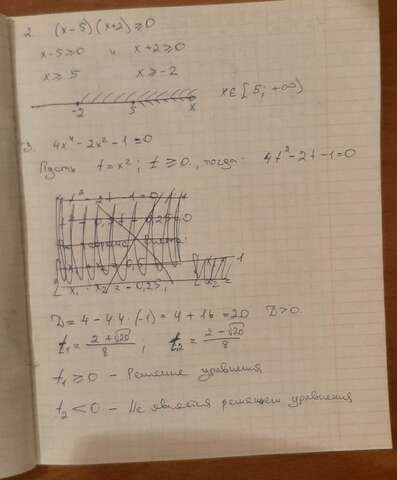 2 (x-5)(x+2)≥0
x-5≥0 и x+2≥0
x≥5 x≥-2
-2 5 x x∈[5; +∞)
3. 4x⁴-2x²-1=0
Пусть t=x²; t≥0, тогда 4t²-2t-1=0
D=4-4·4·(-1)=4+16=20 D>0
t₁=(2+√20)/8, t₂=(2-√20)/8
t₁≥0 - Решение уравнения
t₂<0 - Не является решением уравнения